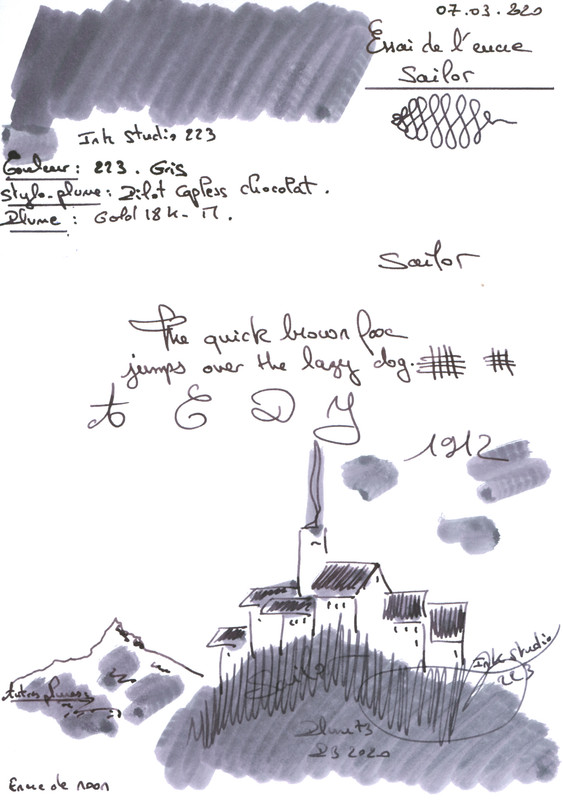 07.03.2020
Essai de l'encre
Sailor
Ink Studio 223
Couleur : 223. Gris
Stylo-plume : Pilot Capless chocolat.
Plume : Gold 18k - M.
Sailor
The quick brown fox
jumps over the lazy dog.
A E D Y
1912
Autres plumes
Sailor
Ink Studio
223
Plume 73
2020
Encre de